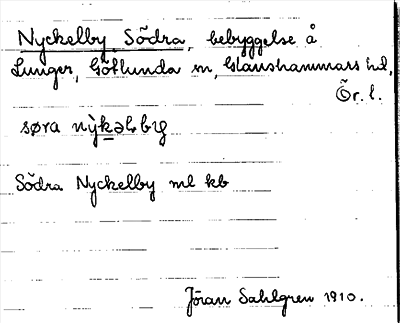 Nyckelby, Södra, bebyggelse å
Lunger, Götlunda sn, Glanshammars hd,
Ör. l.
søra nỳkəlby
Södra Nyckelby ml kb
Jöran Sahlgren 1910.